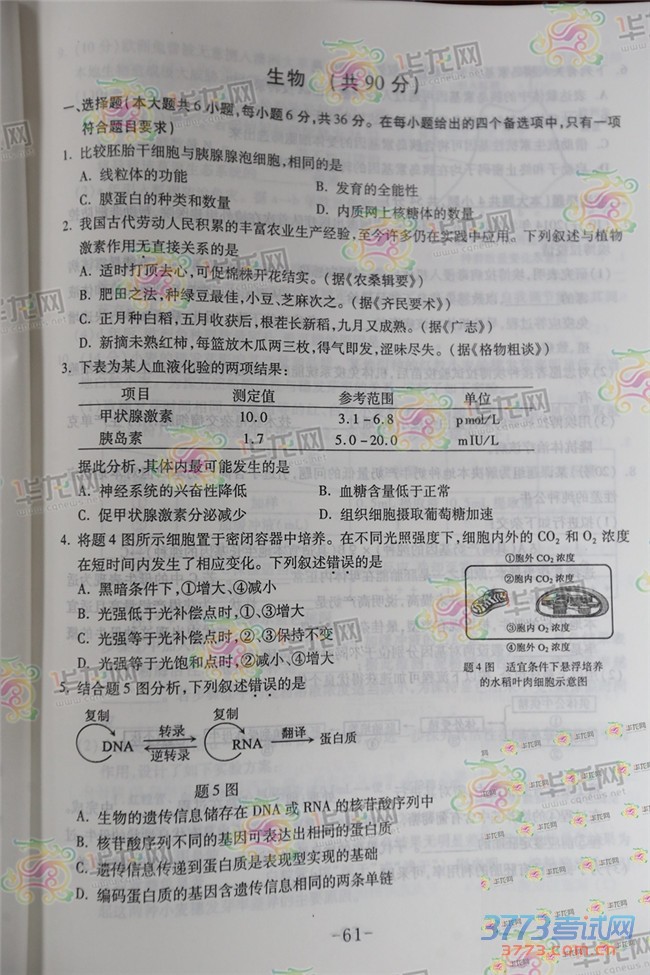 生物 (共90分)
一、选择题(本大题共6小题,每小题6分,共36分。在每小题给出的四个备选项中,只有一项
符合题目要求)
1. 比较胚胎干细胞与胰腺腺泡细胞,相同的是
A. 线粒体的功能 B. 发育的全能性
C. 膜蛋白的种类和数量 D. 内质网上核糖体的数量
2. 我国古代劳动人民积累的丰富农业生产经验,至今许多仍在实践中应用。下列叙述与植物
激素作用无直接关系的是
A. 适时打顶去心,可促棉株开花结实。(据《农桑辑要》)
B. 肥田之法,种绿豆最佳,小豆、芝麻次之。(据《齐民要术》)
C. 正月种白稻,五月收获后,根茬长新稻,九月又成熟。(据《广志》)
D. 新摘未熟红柿,每篮放木瓜两三枚,得气即发,涩味尽失。(据《格物粗谈》)
3. 下表为某人血液化验的两项结果:
项目 测定值 参考范围 单位
甲状腺激素 10.0 3.1-6.8 pmol/L
胰岛素 1.7 5.0-20.0 mIU/L
据此分析,其体内最可能发生的是
A. 神经系统的兴奋性降低 B. 血糖含量低于正常
C. 促甲状腺激素分泌减少 D. 组织细胞摄取葡萄糖加速
4. 将题4图所示细胞置于密闭容器中培养。在不同光照强度下,细胞内外的CO2和O2浓度
在短时间内发生了相应变化。下列叙述错误的是
A. 黑暗条件下,①增大、④减小
B. 光强低于光补偿点时,①、③增大
C. 光强等于光补偿点时,②、③保持不变
D. 光强等于光饱和点时,②减小、④增大
①胞外CO2浓度
②胞内CO2浓度
③胞内O2浓度
④胞外O2浓度
题4图 适宜条件下悬浮培养
的水稻叶肉细胞示意图
5. 结合题5图分析,下列叙述错误的是
复制 复制
DNA 转录 逆转录 RNA 翻译 蛋白质
题5图
A. 生物的遗传信息储存在DNA或RNA的核苷酸序列中
B. 核苷酸序列不同的基因可表达出相同的蛋白质
C. 遗传信息传递到蛋白质是表现型实现的基础
D. 编码蛋白质的基因含遗传信息相同的两条单链
-61-
3773考试网
3773.com.cn
华龙网